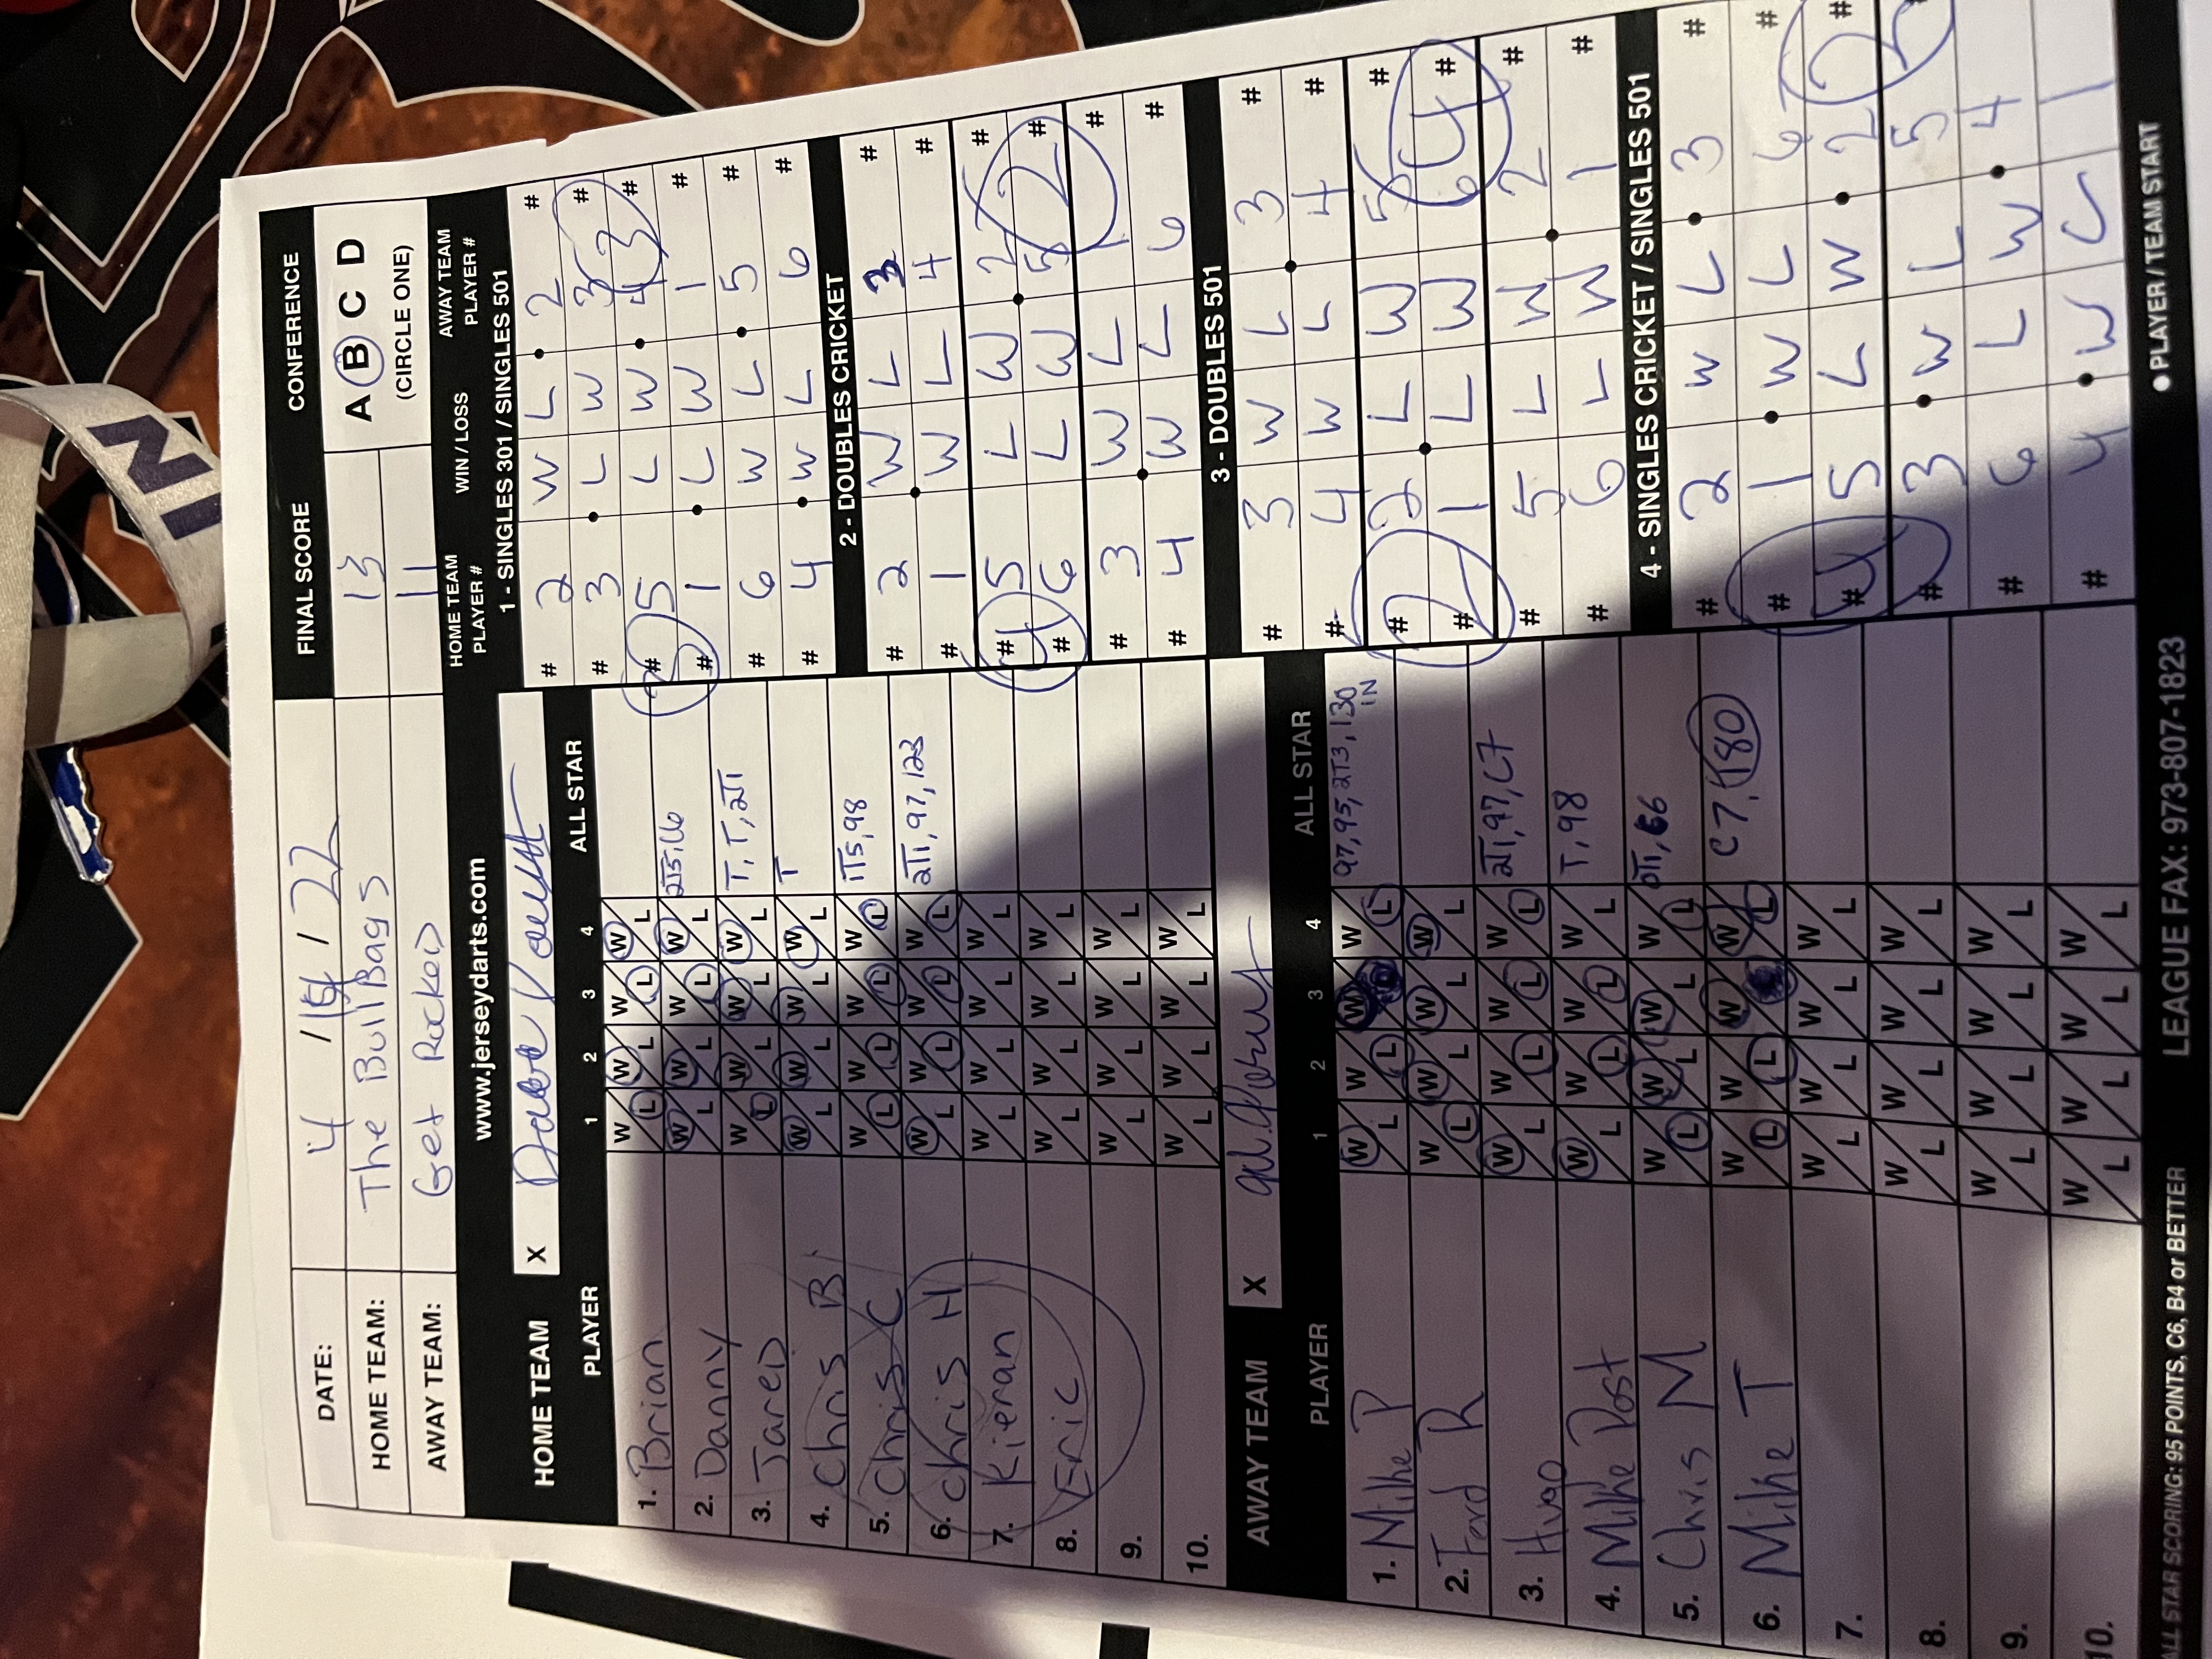 DATE: 4 / 19 / 22 FINAL SCORE CONFERENCE
HOME TEAM: The Bull Bags 13 A B C D
AWAY TEAM: Get Rocked 11 (CIRCLE ONE)
www.jerseydarts.com
HOME TEAM X
PLAYER 1 2 3 4 ALL STAR
1. Brian W L W L W L W L
2. Danny W L W L W L W L
3. Jared W L W L W L W L T, T, 2T1
4. Chris B W L W L W L W L T
5. Chris C W L W L W L W L 1T5, 98
6. Chris H W L W L W L W L 2T1, 97, 123
7. Kieran W L W L W L W L
8. Eric W L W L W L W L
9. W L W L W L W L
10. W L W L W L W L
AWAY TEAM X
PLAYER 1 2 3 4 ALL STAR
1. Mike P W L W L W L W L 97, 95, 2T3, 130 IN
2. Ford R W L W L W L W L
3. Hugo W L W L W L W L 2T1, 97, C7
4. Mike Post W L W L W L W L T, 98
5. Chris M W L W L W L W L
6. Mike T W L W L W L W L C7, 180
7. W L W L W L W L
8. W L W L W L W L
9. W L W L W L W L
10. W L W L W L W L
HOME TEAM PLAYER # WIN / LOSS AWAY TEAM PLAYER #
1 - SINGLES 301 / SINGLES 501
# 2 W L 2 #
# 3 L W 3 #
# 5 L W 4 #
3 3
# 1 L W 1 #
# 6 W L 5 #
# 4 W L 6 #
2 - DOUBLES CRICKET
# 2 W L 3 #
# 1 W L 4 #
# 5 L W 2 #
4 2
# 6 L W 5 #
# 3 W L 1 #
# 4 W L 6 #
3 - DOUBLES 501
# 3 W L 3 #
# 4 W L 4 #
# 2 L W 5 #
2 4
# 1 L W 6 #
# 5 L W 2 #
# 6 L W 1 #
4 - SINGLES CRICKET / SINGLES 501
# 2 W L 3 #
# 1 W L 6 #
# 5 L W 2 #
4 2
# 3 W L 5 #
# 6 L W 4
# 4 W L 1
ALL STAR SCORING: 95 POINTS, C6, B4 or BETTER LEAGUE FAX: 973-807-1823 ● PLAYER / TEAM START